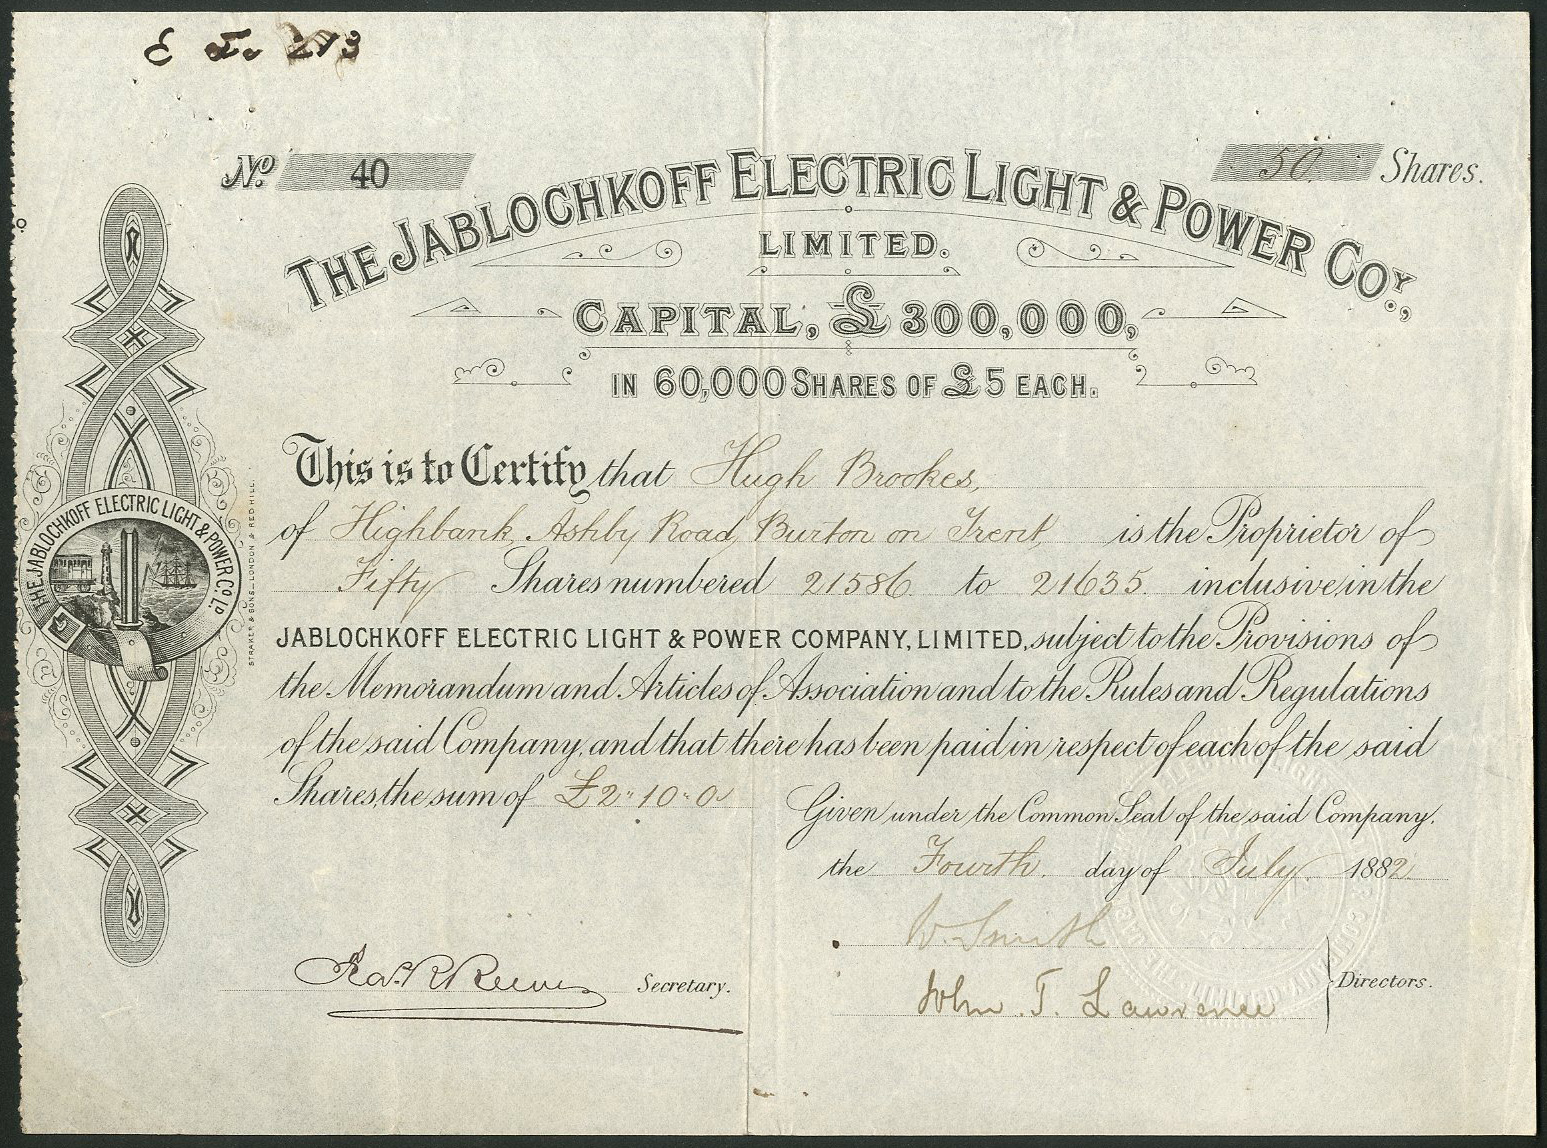 No. 40
50. Shares.
THE JABLOCHKOFF ELECTRIC LIGHT & POWER COY.,
LIMITED.
CAPITAL, £300,000,
IN 60,000 SHARES OF £5 EACH.
This is to Certify that Hugh Brookes,
of Highbank, Ashby Road, Burton on Trent, is the Proprietor of
Fifty Shares numbered 21586 to 21635 inclusive in the
JABLOCHKOFF ELECTRIC LIGHT & POWER COMPANY, LIMITED, subject to the Provisions of
the Memorandum and Articles of Association and to the Rules and Regulations
of the said Company, and that there has been paid in respect of each of the said
Shares, the sum of £2"10"0
Given under the Common Seal of the said Company,
the Fourth. day of July 1882
W. Smith
John. T. Lawrence
Directors.
Secretary.
THE JABLOCHKOFF ELECTRIC LIGHT & POWER CO. LD.
STRAKER & SONS, LONDON & REDHILL.